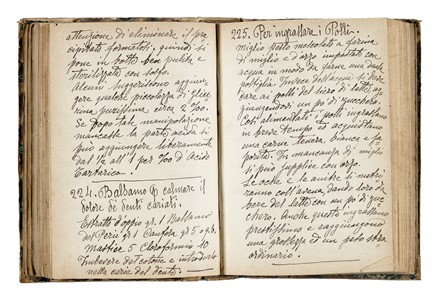 attenzione di eliminare il pre
cipitato formatosi, quindi si
pone in botti ben pulite e
sterilizzate con solfo.
Alcuni suggeriscono aggiun
gere qualche piccolezza di Glice
rina purissima circa 2 %00.
Se dopo tale manipolazione
mancasse la parte acida si
può aggiungere liberamente
dal 1/2 all' 1 per %00 d'Acido
Tartarico.
224. Balsamo per calmare il
dolore de' denti cariati.
Estratto d'oppio gr. 1 Balsamo
del Perù gr. 1 Canfora gr. 5
Mastice 5 Cloroformio 10
Imbevere del cotone e introdurlo
nella carie del dente.
225. Per ingrassare i Polli.
Miglio pesto mescolato a farina
di miglio e d'orzo impastate con
acqua in modo da farne una densa
poltiglia. Invece dell'acqua si deve
dare ai polli del siero di latte ag
giungendovi un po' di zucchero.
Così alimentati i polli ingrassano
in breve tempo ed acquistano
una carne tenera, bianca e sa
porita. In mancanza di miglio
si può supplire con orzo.
Le oche e le anitre si nutri
ranno coll'avena dando loro da
bere del latte con un po' di zuc
chero. Anche queste ingrassano
prestissimo e raggiungono
una grossezza ed un peso stra
ordinario.